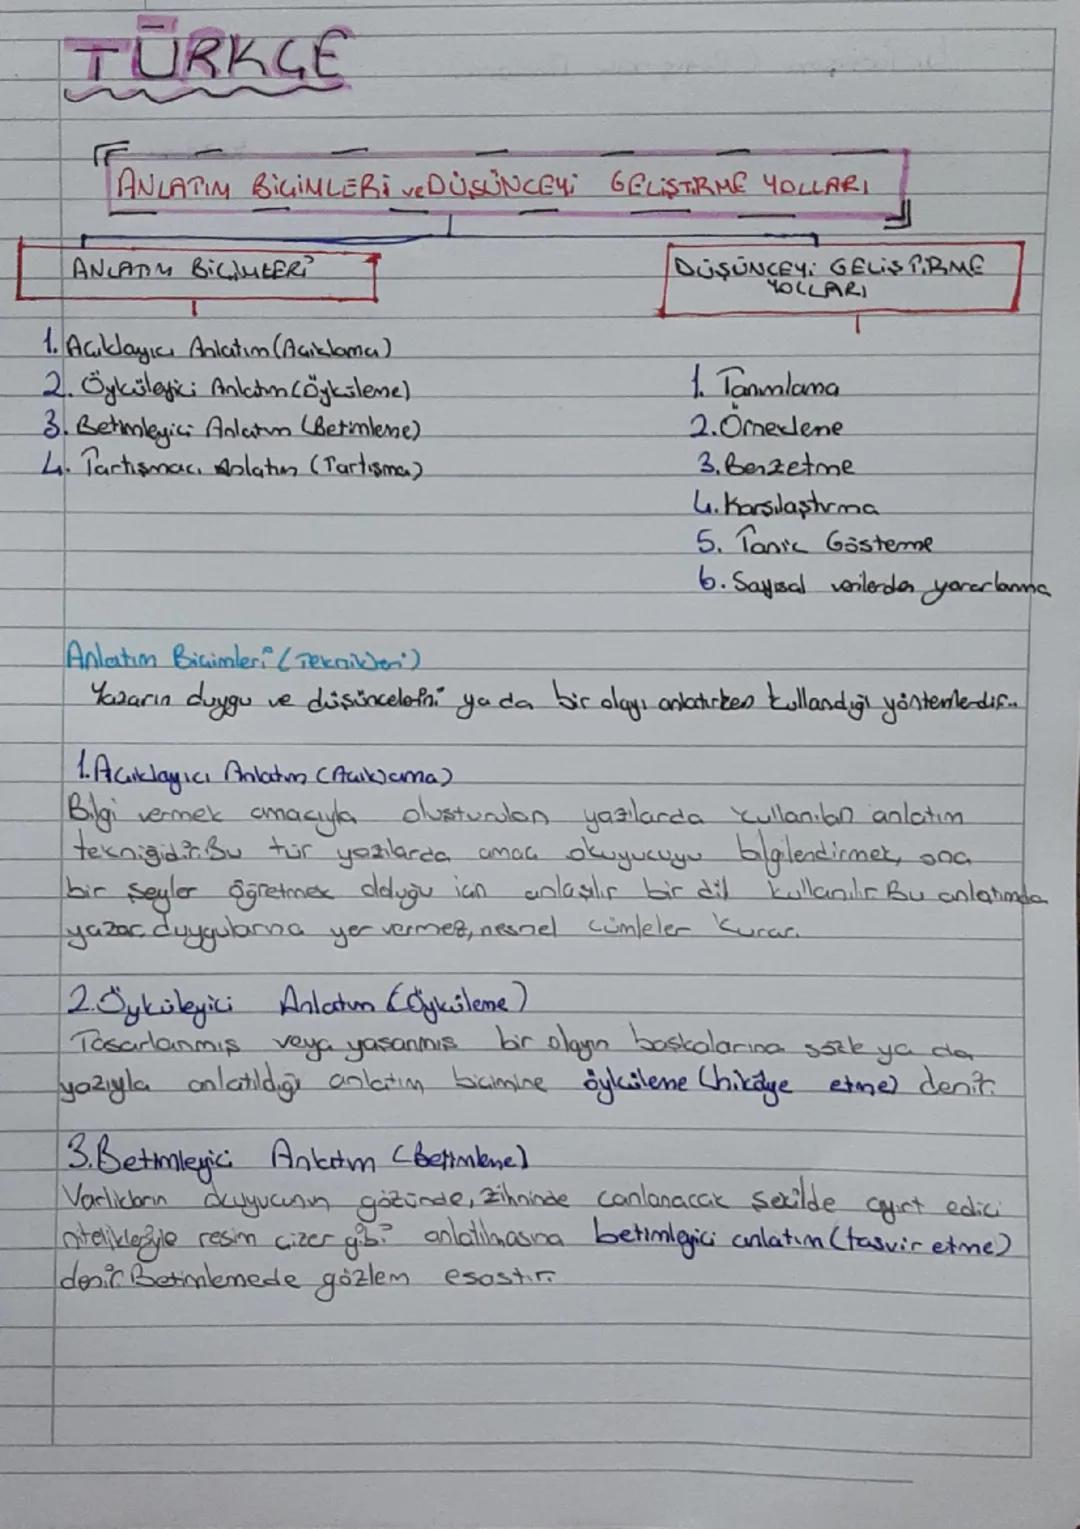 TÜRKÇE
ANLATIM BİÇİMLERİ ve DÜŞÜNCEYİ GELİŞTİRME YOLLARI
ANLATIM BİÇİMLERİ
DÜŞÜNCEYİ GELİŞTİRME
YOLLARI
1. Açıklayıcı Anlatım (Açıklama)
2. Öyküleyici Anlatım (Öyküleme)
3. Betimleyici Anlatım (Betimleme)
4. Tartışmacı Anlatım (Tartışma)
1. Tanımlama
2. Örnekleme
3. Benzetme
4. Karşılaştırma
5. Tanık Gösterme
6. Sayısal verilerden yararlanma
Anlatım Biçimleri (Teknikleri)
Yazarın duygu ve düşüncelerini ya da bir olayı anlatırken kullandığı yöntemlerdir..
1. Açıklayıcı Anlatım (Açıklama)
Bilgi vermek amacıyla oluşturulan yazılarda kullanılan anlatım
tekniğidir. Bu tür yazılarda amaç okuyucuyu bilgilendirmek, ona
bir şeyler öğretmek olduğu için anlaşılır bir dil kullanılır. Bu anlatımda
yazar duygularına yer vermez, nesnel cümleler kurar.
2. Öyküleyici Anlatım (Öyküleme)
Tasarlanmış veya yaşanmış bir olayın başkalarına sözle ya da
yazıyla anlatıldığı anlatım biçimine öyküleme (hikâye etme) denir.
3. Betimleyici Anlatım (Betimleme)
Varlıkların okuyucunun gözünde, zihninde canlanacak şekilde ayırt edici
nitelikleriyle resim çizer gibi anlatılmasına betimleyici anlatım (tasvir etme)
denir. Betimlemede gözlem esastır.